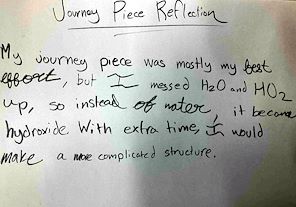 Journey Piece Reflection
My journey piece was mostly my best
effort, but I messed H2O and HO2
up, so instead of water, it became
hydroxide. With extra time, I would
make a more complicated structure.